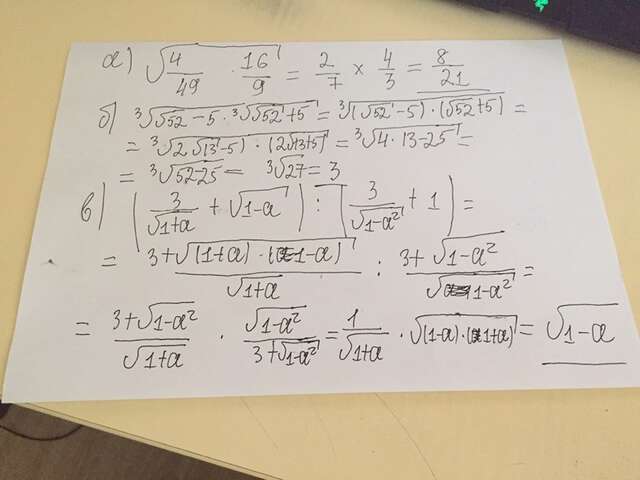 а) √(4/49 · 16/9) = 2/7 × 4/3 = 8/21
б) ³√(√52 - 5) · ³√(√52 + 5) = ³√((√52 - 5) · (√52 + 5)) =
= ³√((2√13 - 5) · (2√13 + 5)) = ³√(4 · 13 - 25) =
= ³√(52 - 25) = ³√27 = 3
в) (3/√(1+a) + √(1-a)) : (3/√(1-a²) + 1) =
= (3 + √((1+a) · (1-a)))/√(1+a) : (3 + √(1-a²))/√(1-a²) =
= (3 + √(1-a²))/√(1+a) · √(1-a²)/(3 + √(1-a²)) = 1/√(1+a) · √((1-a) · (1+a)) = √(1-a)